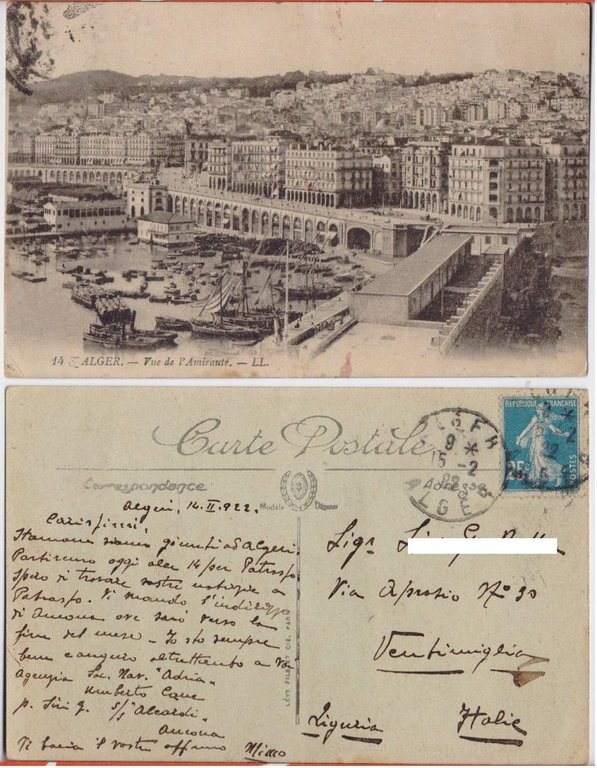 14 ALGER. — Vue de l'Amirauté. — LL.
Carte Postale
Correspondance
Adresse
Modèle Déposé
ALGER
9 *
15 -2
22
ALGER
REPUBLIQUE FRANÇAISE
25
POSTES
LÉVY FILS ET CIE, PARIS
Algeri, 14.II.922.
Carissimi,
Stamane siamo giunti ad Algeri.
Partiremo oggi alle 14 per
Spero di trovare vostre notizie a
Vi mando l'indirizzo
di Ancona ove sarò verso la
fine del mese - Io sto sempre
bene e auguro altrettanto a Voi
Agenzia Soc. Nav. "Adria"
Umberto Cave
p. Siri G. S/S "Alcardi"
Ancona
Vi bacia il vostro
Sigr
Via Aprosio No 30
Ventimiglia
Liguria Italie